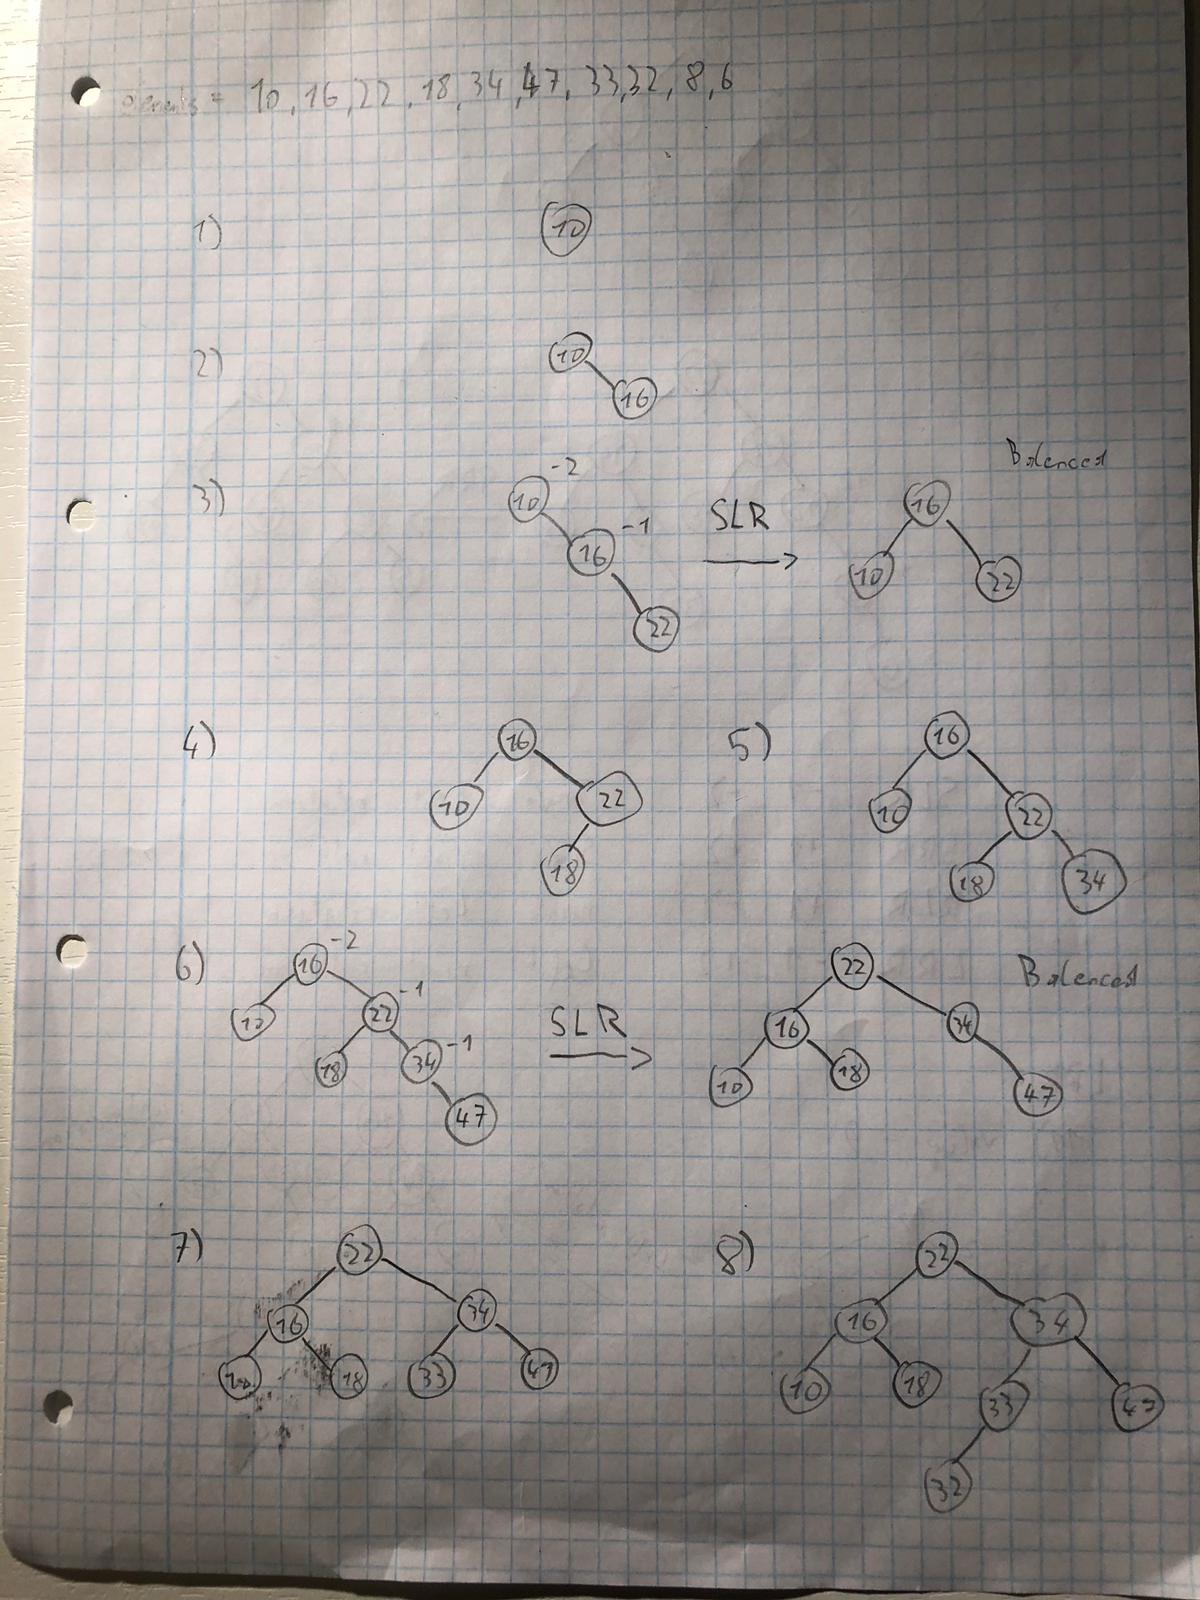 elements = 10, 16, 22, 18, 34, 47, 33, 32, 8, 6
1) 10
2) 10
16
3) 10 -2
16 -1
22
SLR
Balenced
16
10 22
4) 16
10 22
18
5) 16
10 22
18 34
6) 16 -2
10 22 -1
18 34 -1
47
SLR
Balenced
22
16 34
10 18 47
7) 22
16 34
10 18 33 47
8) 22
16 34
10 18 33 47
32